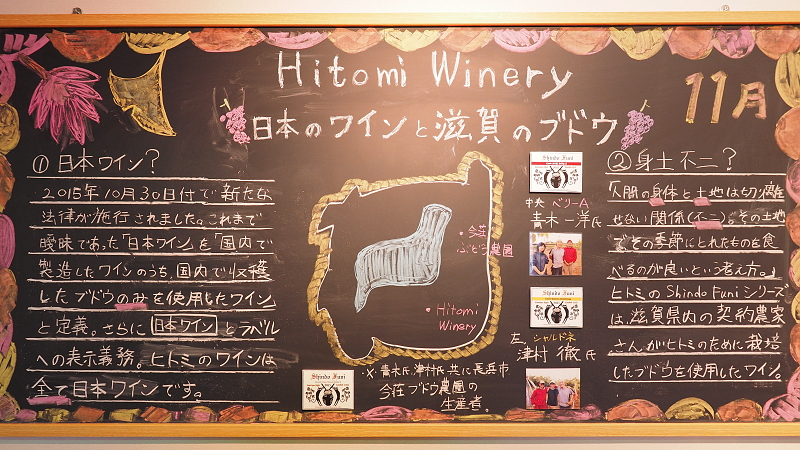 Hitomi Winery
11月
日本のワインと滋賀のブドウ
① 日本ワイン?
2015年10月30日付で新たな
法律が施行されました。これまで
曖昧であった「日本ワイン」を「国内で
製造したワインのうち、国内で収穫
したブドウのみを使用したワイン」
と定義。さらに 日本ワイン とラベル
への表示義務。ヒトミのワインは
全て日本ワインです。
・今荘
ぶどう農園
・Hitomi
Winery
Shindo Funi
※青木氏、津村氏共に長浜市
今荘ブドウ農園の
生産者。
Shindo Funi
中央 ベリーA
青木一洋氏
Shindo Funi
左 シャルドネ
津村 徹氏
② 身土不二?
「人間の身体と土地は切り離
せない関係(不二)。その土地
でその季節にとれたものを食
べるのが良いという考え方。」
ヒトミのShindo Funiシリーズ
は、滋賀県内の契約農家
さんがヒトミのために栽培
したブドウを使用したワイン。